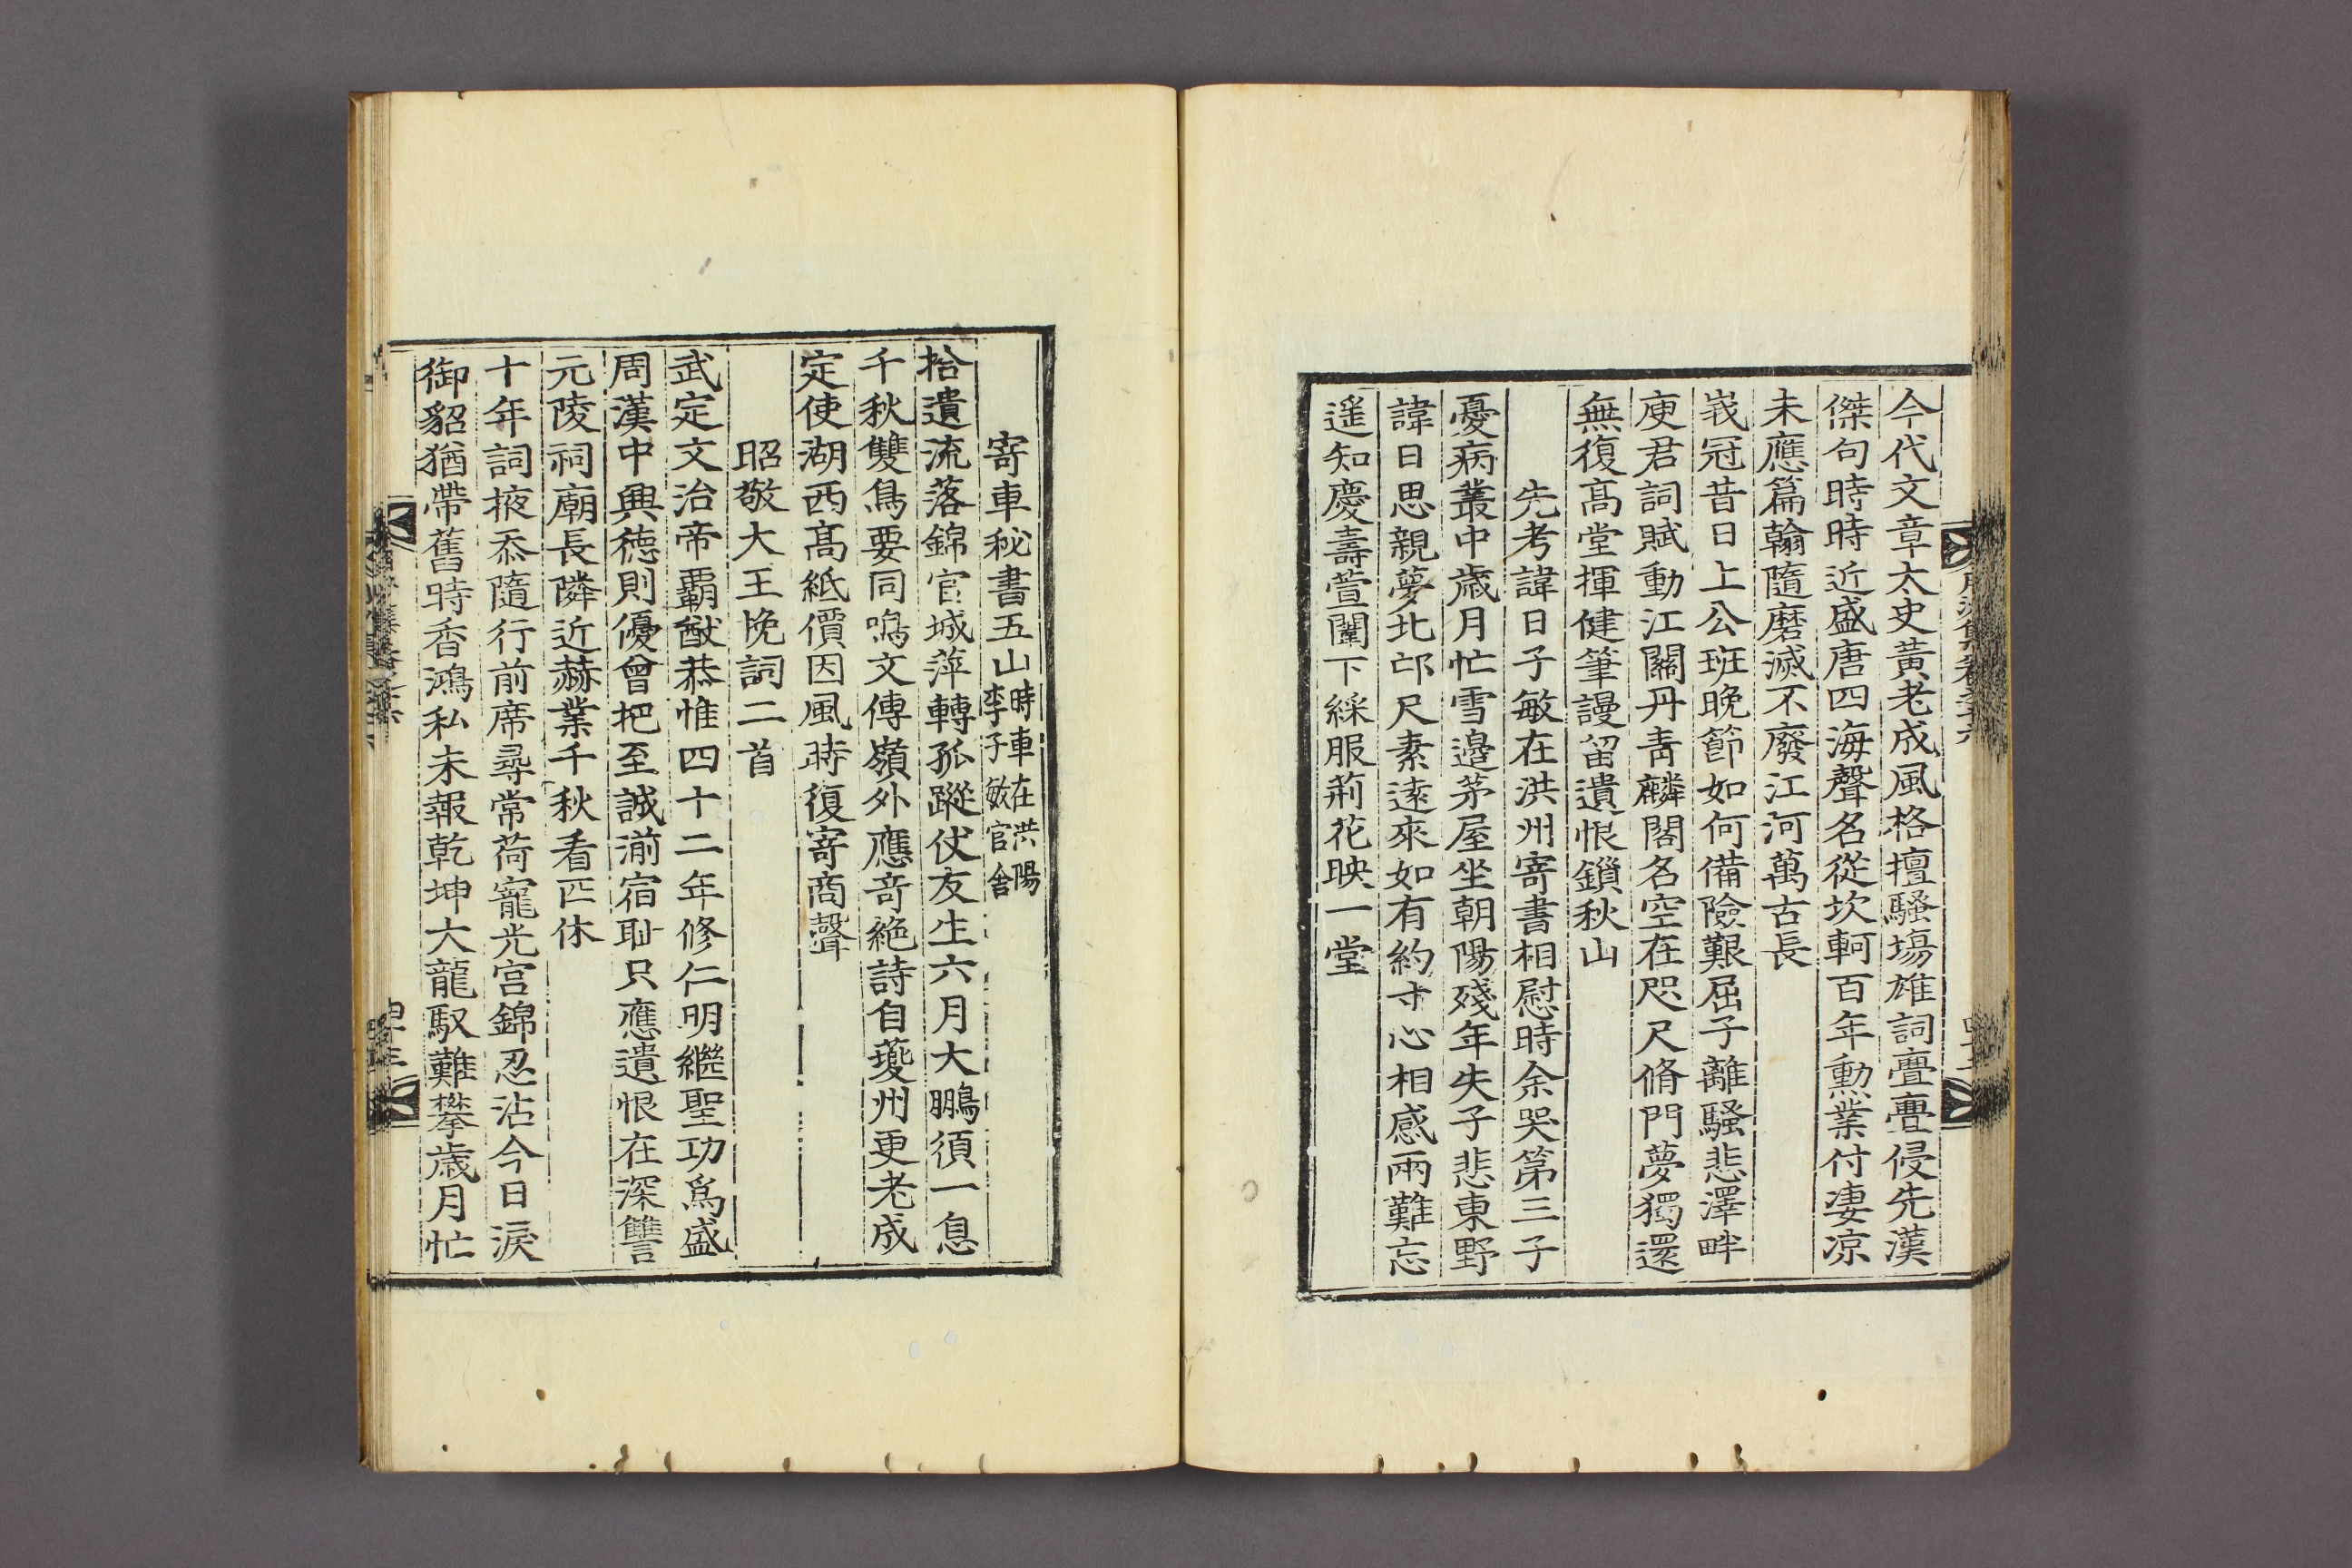 今代文章太史黃老成風格擅騷塲雄詞亹亹侵先漢
傑句時時近盛唐四海聲名從坎軻百年勳業付凄凉
未應篇翰隨磨滅不廢江河萬古長
峩冠昔日上公班晩節如何備險艱屈子離騷悲澤畔
庾君詞賦動江關丹靑麟閣名空在咫尺脩門夢獨還
無復高堂揮健筆謾留遺恨鎖秋山
先考諱日子敏在洪州寄書相慰時余哭第三子
憂病叢中歲月忙雪邉茅屋坐朝陽殘年失子悲東野
諱日思親夢北邙尺素遠來如有約寸心相感兩難忘
遥知慶壽萱闈下綵服荊花映一堂
寄車秘書五山時車在洪陽李子敏官舍
拾遺流落錦官城萍轉孤蹤仗友生六月大鵬須一息
千秋雙鳥要同鳴文傳嶺外應竒絶詩自夔州更老成
定使湖西高紙價因風時復寄商聲
昭敬大王挽詞二首
武定文治帝覇猷恭惟四十二年修仁明繼聖功爲盛
周漢中興德則優曾把至誠湔宿耻只應遺恨在深讐
元陵祠廟長隣近赫業千秋看匹休
十年詞掖忝隨行前席尋常荷寵光宮錦忍沾今日淚
御貂猶帶舊時香鴻私未報乾坤大龍馭難攀歲月忙